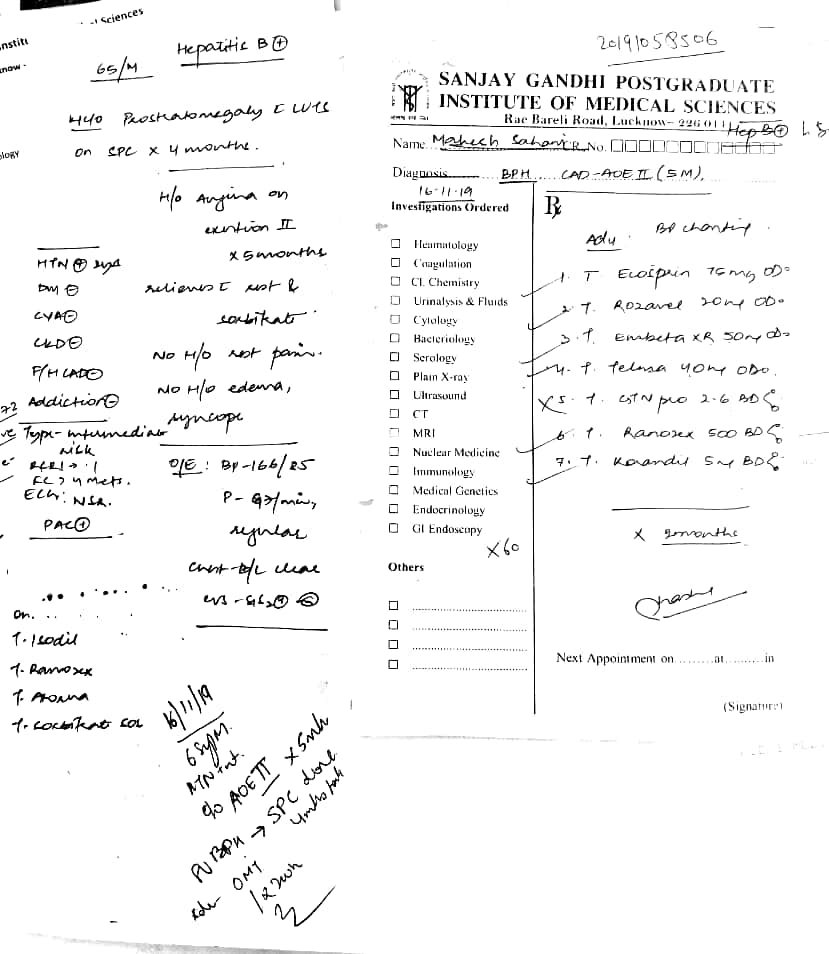 Sciences
Hepatitic B ⊕
65/M
H/O Prostatomegaly c̄ LUTS
on SPC x 4 months.
H/o Angina on
exertion II
x 5 months
relieves c̄ rest &
sorbitrate
No H/o rest pain.
No H/o edema,
syncope
HTN ⊕
DM ⊖
CVA ⊖
CKD ⊖
F/H CAD ⊖
Addiction ⊖
Type - intermediate
risk
RCRI → 1
FC > 4 Mets.
ECG: NSR.
PAC ⊕
O/E : BP - 166/85
regular
Chest - B/L clear
On.
T. Isodil
T. Ranozex
T.
T. Sorbitrate SOS
16/11/19
65y/M
c/o AOE II x 5mth
BPH → SPC done
4mths back
OMT
20191058506
SANJAY GANDHI POSTGRADUATE
INSTITUTE OF MEDICAL SCIENCES
Rae Bareli Road, Lucknow - 226 014
Hep B ⊕
Name Mahech Sahani C.R. No.
Diagnosis BPH CAD-AOE II (5M).
16-11-19
Investigations Ordered
Rx
Haematology
Coagulation
Cl. Chemistry
Urinalysis & Fluids
Cytology
Bacteriology
Serology
Plain X-ray
Ultrasound
CT
MRI
Nuclear Medicine
Immunology
Medical Genetics
Endocrinology
GI Endoscopy
x 60
Others
Adv. BP charting
1. T Ecosprin 75mg OD
2. T. Rozavel 20mg OD
3. T. Embeta XR 50mg OD
4. T. Telma 40mg OD
X 5. T. GTN pro 2.6 BD
6. T. Ranozex 500 BD
7. T. Korandil 5mg BD
x 2months
Next Appointment on.........at..........in
(Signature)